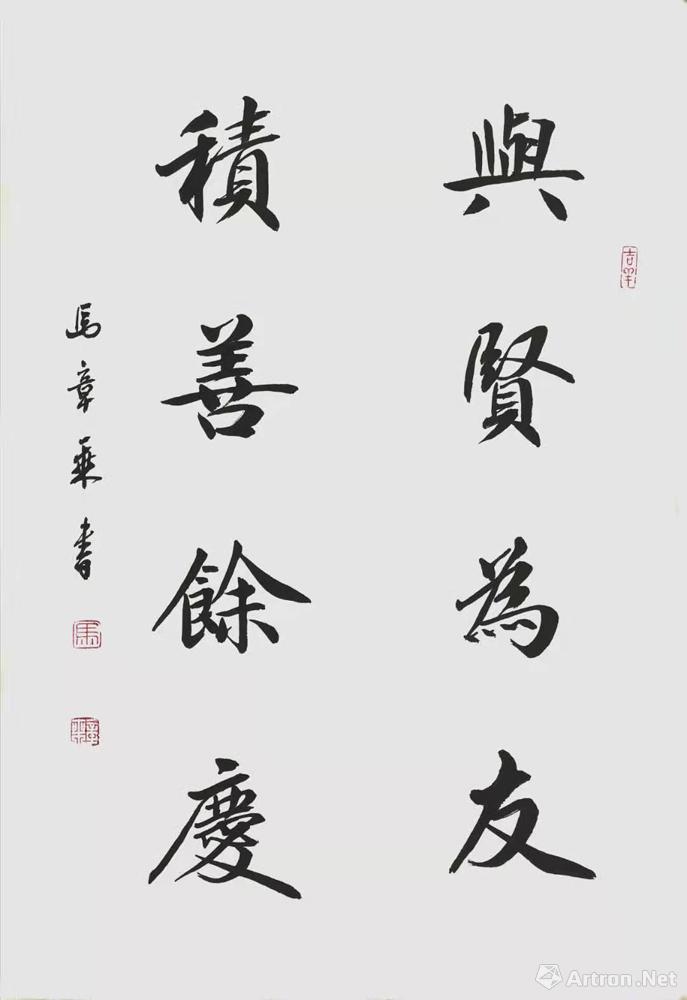 與賢為友
積善餘慶
馬章乘書
馬
Artron.Net